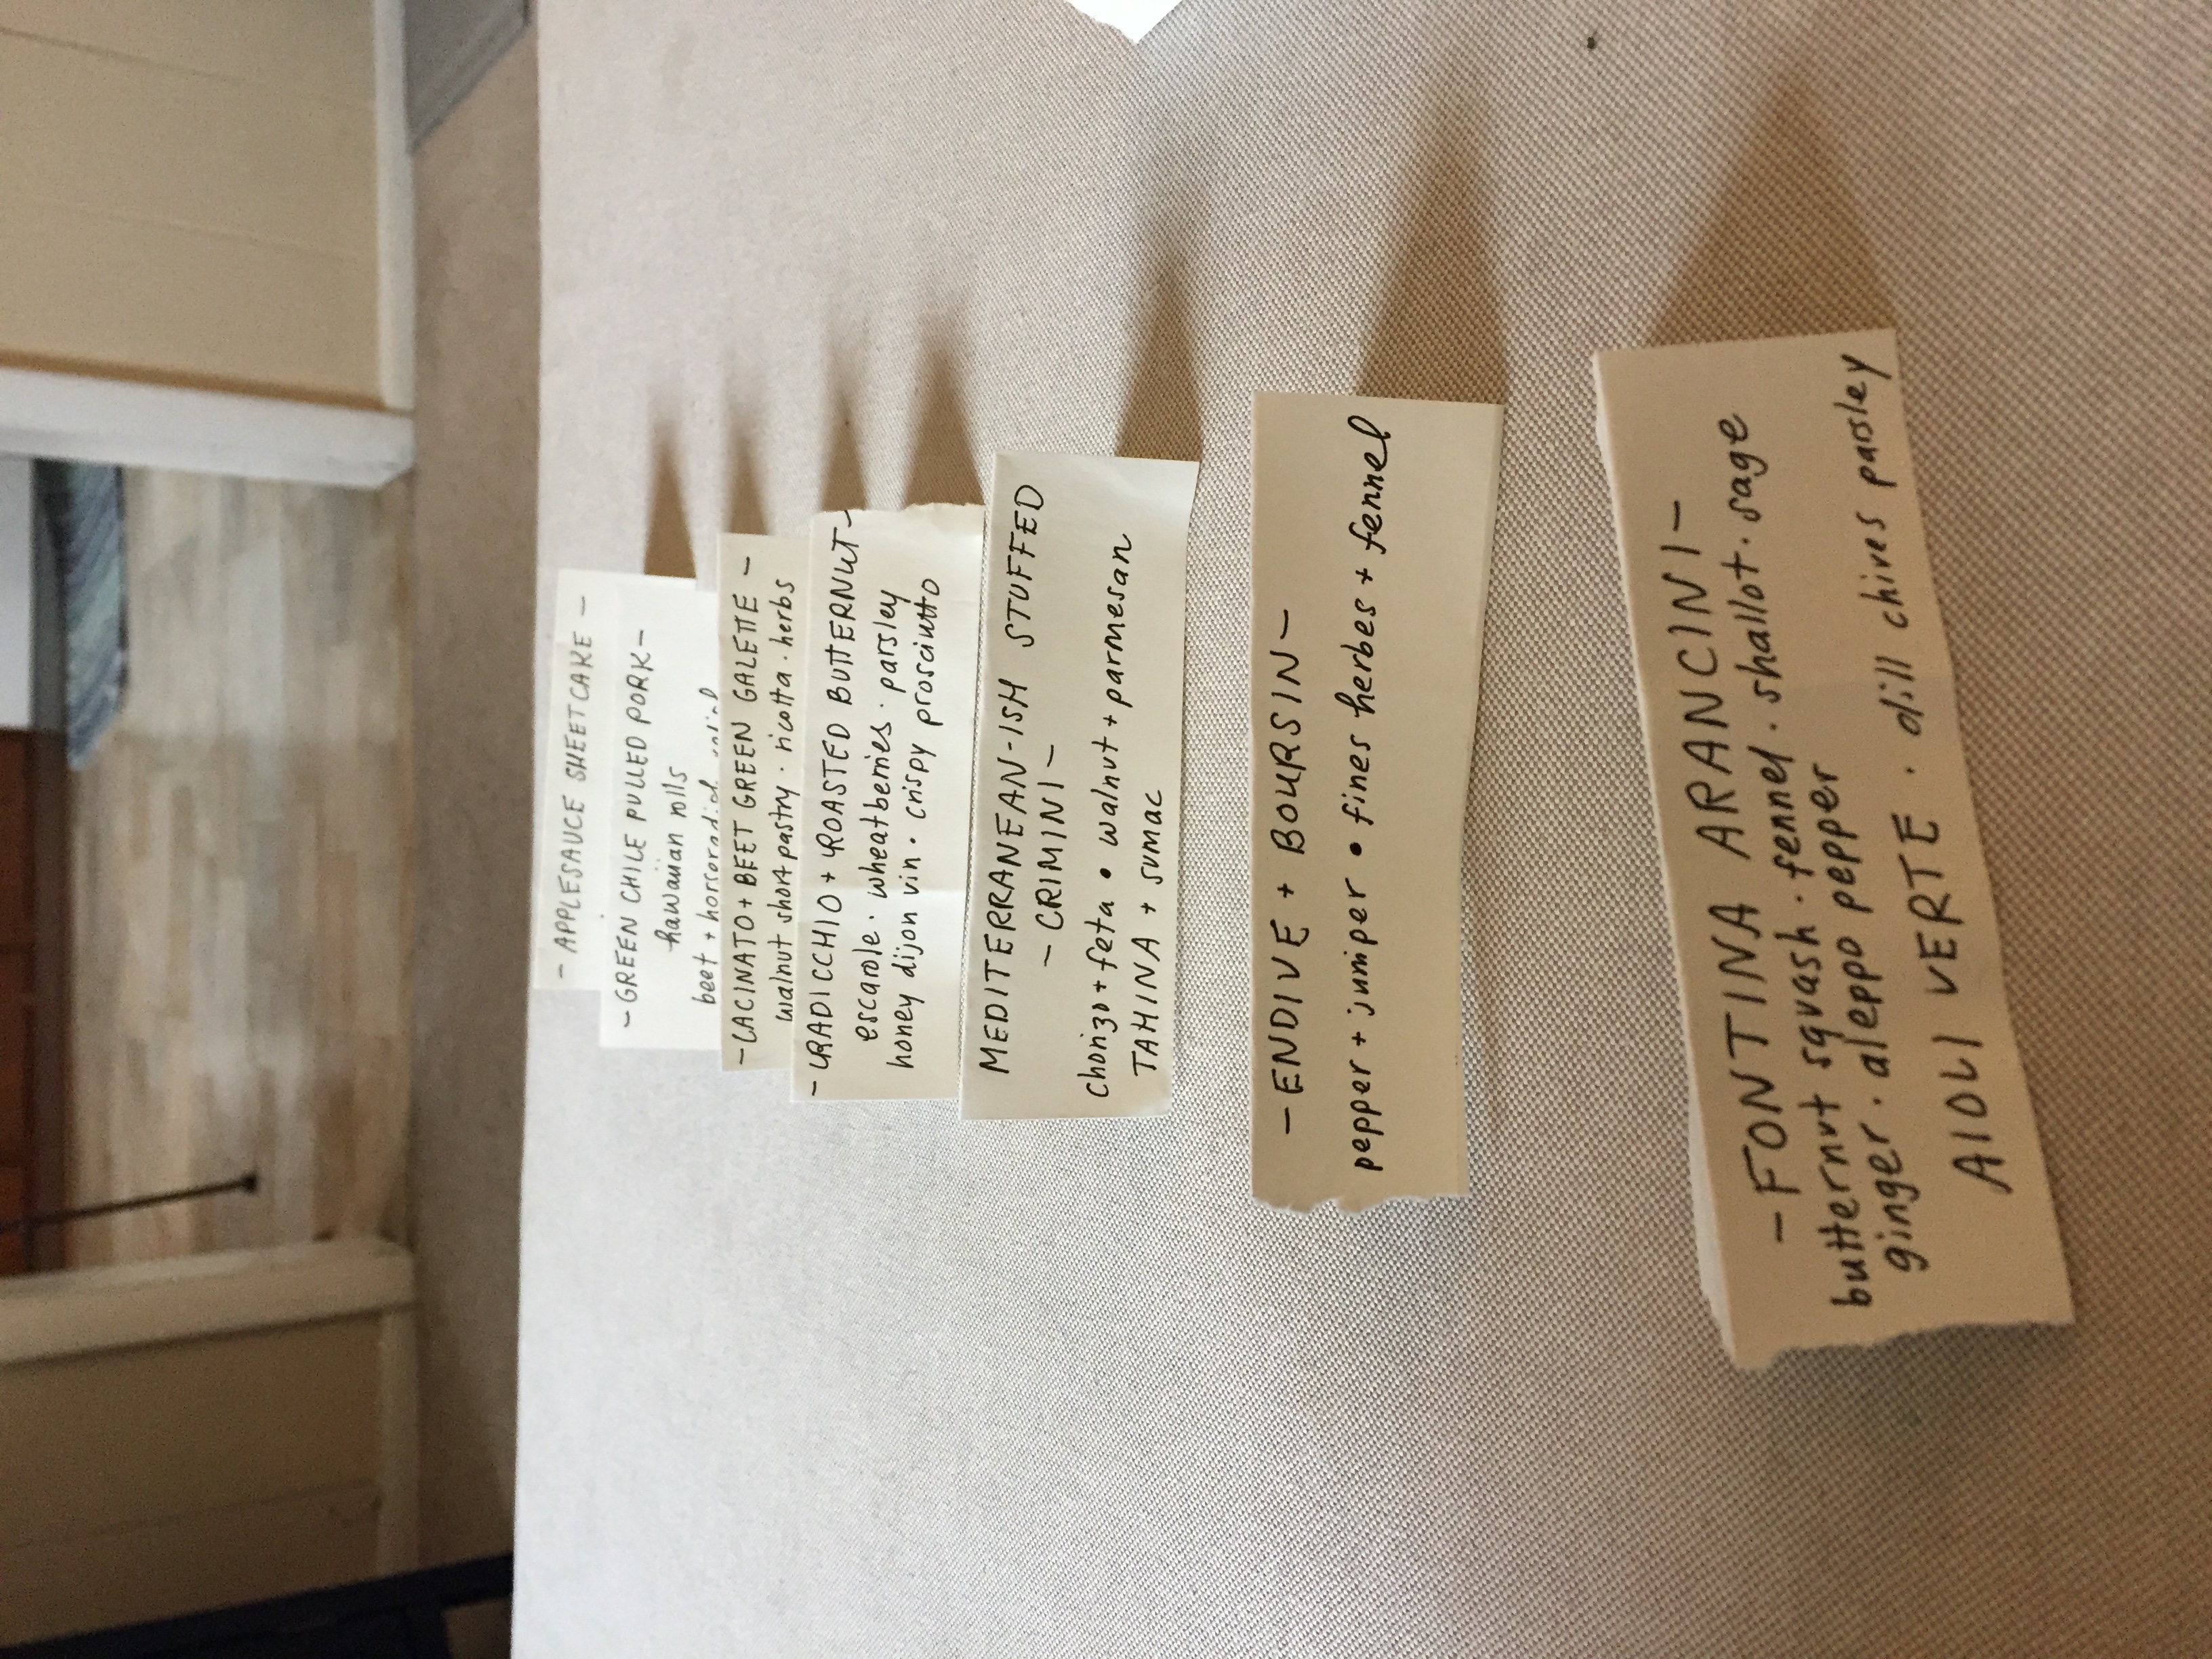 - APPLESAUCE SHEETCAKE -
- GREEN CHILE PULLED PORK -
hawaiian rolls
beet + horseradish relish
- LACINATO + BEET GREEN GALETTE -
walnut short pastry · ricotta · herbs
- RADICCHIO + ROASTED BUTTERNUT -
escarole · wheatberries · parsley
honey dijon vin · crispy prosciutto
MEDITERRANEAN-ISH STUFFED
- CRIMINI -
chorizo + feta • walnut + parmesan
TAHINA + sumac
- ENDIVE + BOURSIN -
pepper + juniper • fines herbes + fennel
- FONTINA ARANCINI -
butternut squash · fennel · shallot · sage
ginger · aleppo pepper
AIOLI VERTE · dill chives parsley